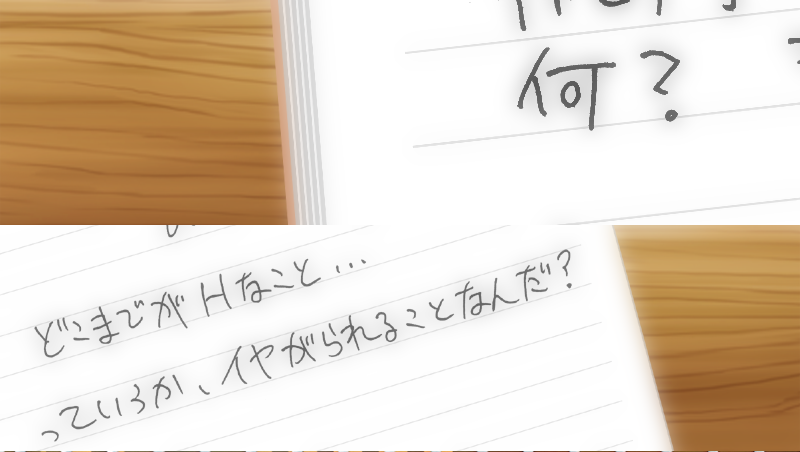 何？
どこまでがHなこと…
っていうか、イヤがられることなんだ？